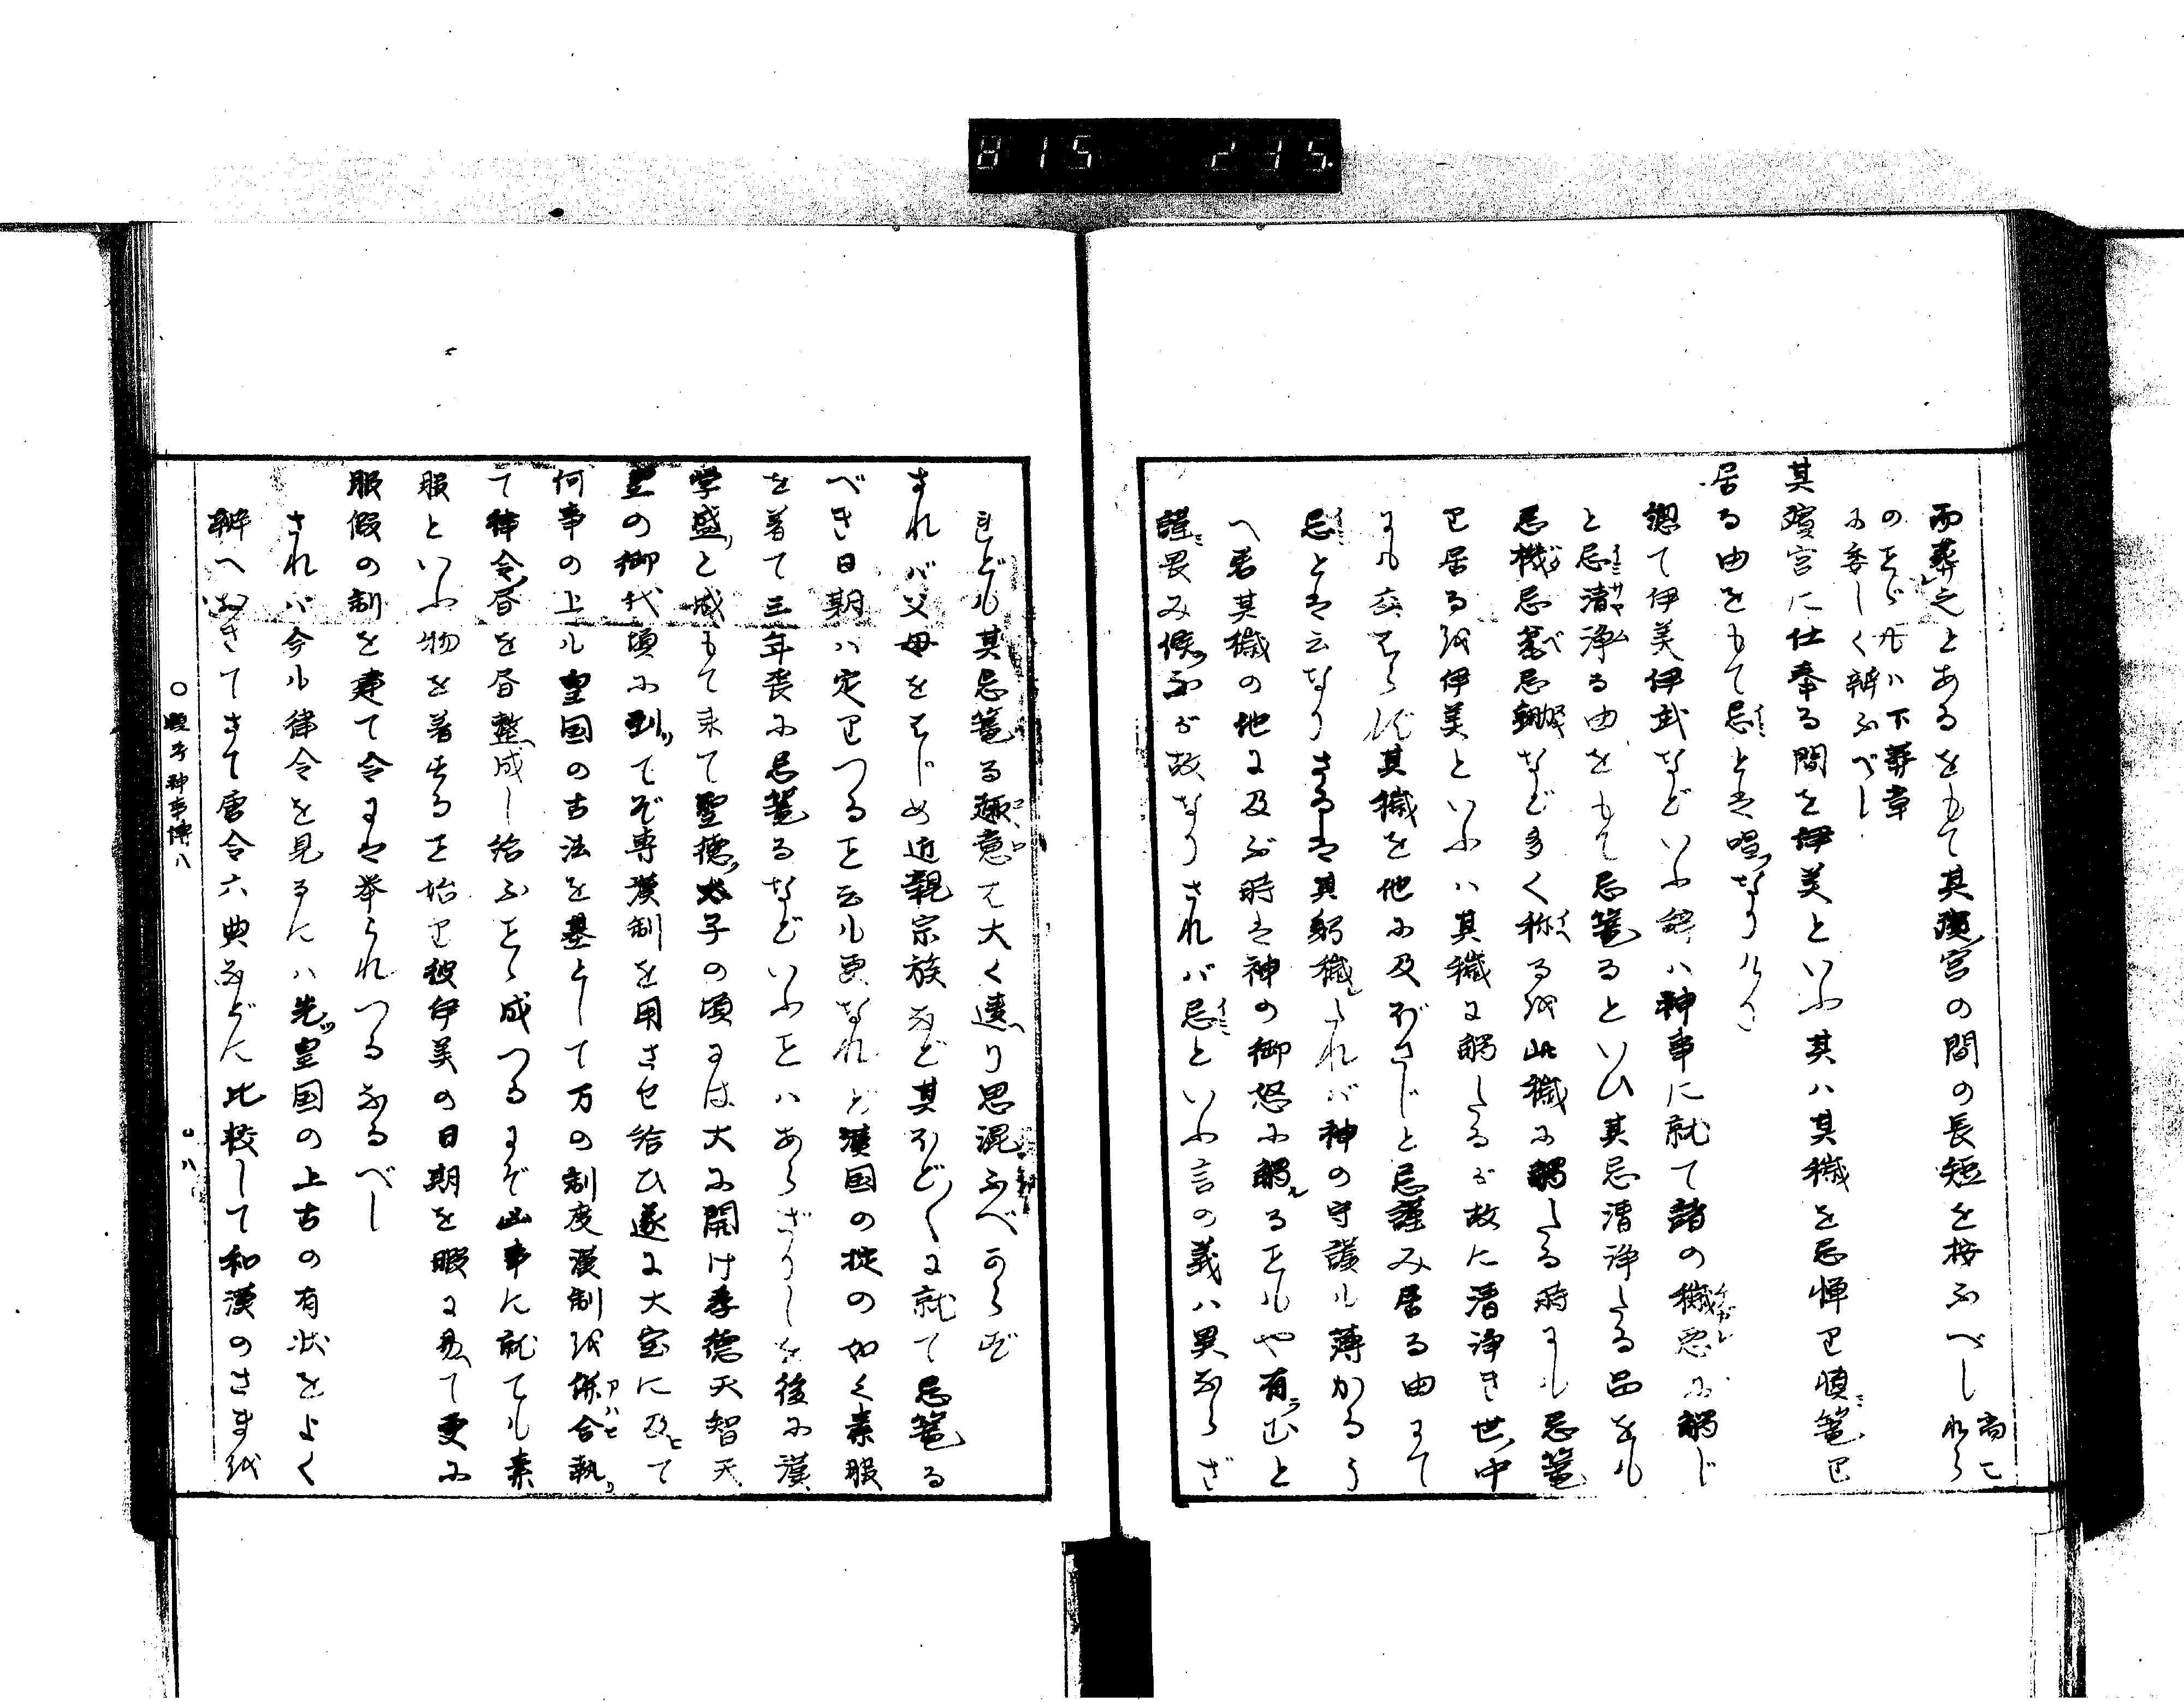 815 235
而葬之とあるをもて其殯宮の間の長短を按ふべし尚こ
れらのことゞもハ下葬章
に委しく辨ふべし
其殯宮に仕奉る間を伊美といふ其ハ其穢を忌憚り慎篭り
居る由をもて忌とは唱なりけり
總て伊美伊武などいふ辞ハ神事に就て諸の穢悪に觸じ
と忌清浄る由をもて忌篭るといひ其忌清浄たる品をも
忌機忌瓮忌𨫤など多く称るを此穢に觸たる時にも忌篭
り居るを伊美といふハ其穢に觸たるが故に清浄き世中
にも交はらず其穢を他に及ぼさじと忌謹み居る由にて
忌とは云なりさるは其躬穢たれバ神の守護も薄かるう
へ若其穢の地に及ぶ時は神の御怒に觸ることもや有むと
謹畏み候ふが故なりされバ忌といふ言の義ハ異ならざ
れども其忌篭る趣意は大く違へり思混ふべからず
されバ父母をはじめ近親宗族など其ほど〳〵に就て忌篭る
べき日期ハ定りつること云も更なれど漢国の掟の如く素服
を着て三年喪に忌篭るなどいふことハあらざりしを後に漢
学盛りと成もて来て聖徳太子の頃には大に開け孝徳天智天
皇の御代頃に到りてぞ専漢制を用させ給ひ遂に大宝に及て
何事の上も皇国の古法を基として万の制度漢制を併合執り
て律令を整へ成し給ふことゝ成つるにぞ凶事に就ても素
服といふ物を着ることと始り彼伊美の日期を暇に易へて更に
服假の制を建て令には挙られつるなるべし
されバ今も律令を見るにハ先ツ皇国の上古の有状をよく
辨へおきてさて唐令六典などに比校して和漢のさまを